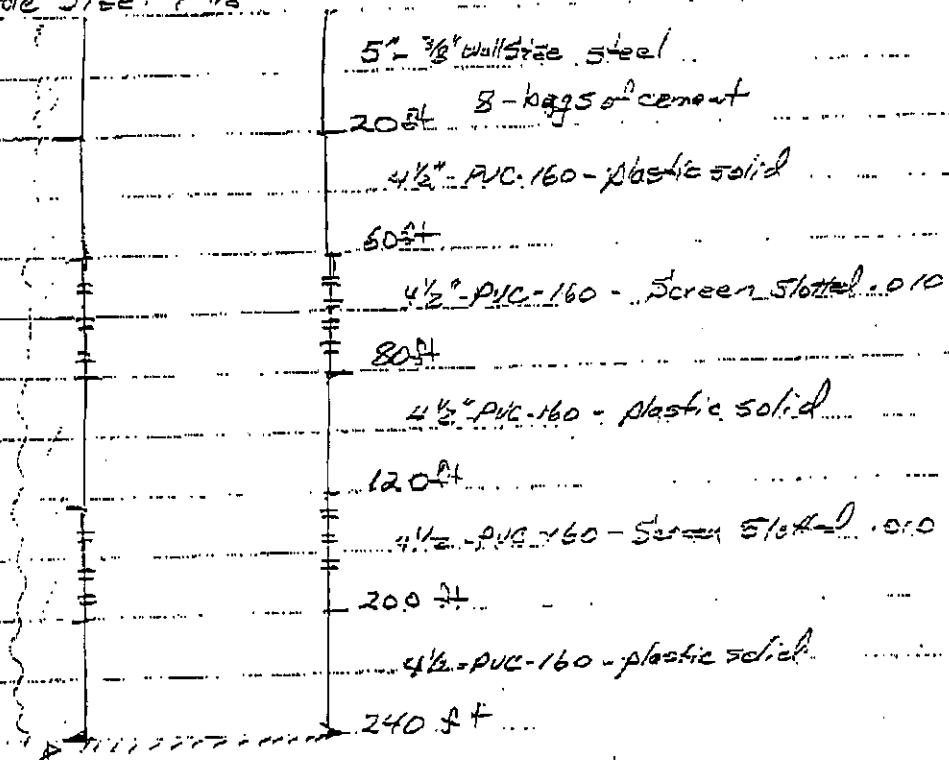 Size:
5" - 3/8" wall size steel
8 - bags of cement
20 ft
4 1/2" - PVC-160 - plastic solid
60 ft
4 1/2" - PVC-160 - Screen Slotted .010
80 ft
4 1/2" - PVC-160 - plastic solid
120 ft
4 1/2 - PVC-160 - Screen Slotted .010
200 ft
4 1/2 - PVC-160 - plastic solid
240 ft